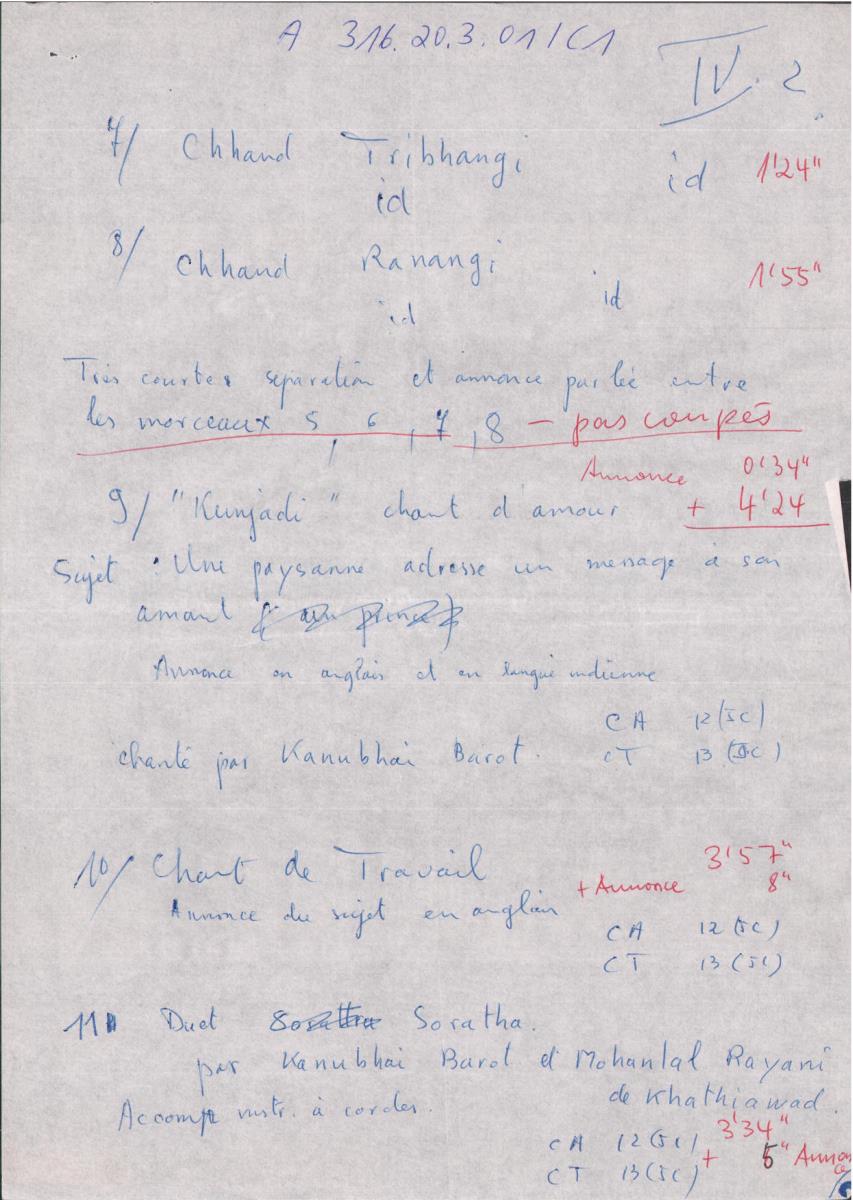 A 316.20.3.01/C1
IV. 2
7/ Chhand Tribhangi id 1'24"
id
8/ Chhand Ranangi 1'55"
id id
Très courtes séparation et annonce parlée entre
les morceaux 5, 6, 7, 8 – pas coupés
Annonce 0'34"
9/ "Kunjadi" chant d'amour + 4'24
Sujet : Une paysanne adresse un message à son
amant
Annonce en anglais et en langue indienne
CA 12 (5C)
chanté par Kanubhai Barot. CT 13 (5C)
10/ Chant de Travail 3'57"
+ Annonce 8"
Annonce du sujet en anglais
CA 12 (5C)
CT 13 (5C)
11 Duet Soratha.
par Kanubhai Barot et Mohanlal Rayani
de Khathiawad.
Accomp instr. à cordes.
CA 12 (5C) 3'34"
CT 13 (5C) + 5" Annonce